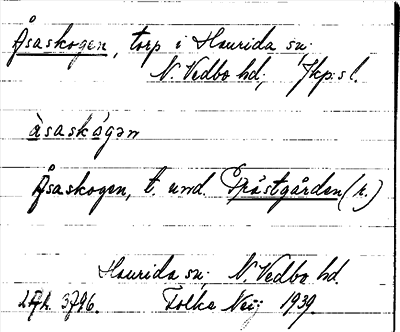 Åsaskogen, torp i Haurida sn;
N. Vedbo hd; Jkp:s l.
àsaskógan
Åsaskogen, t. und. Prästgården (r.)
Haurida sn; N. Vedbo hd.
3796. Folke Neij 1939.